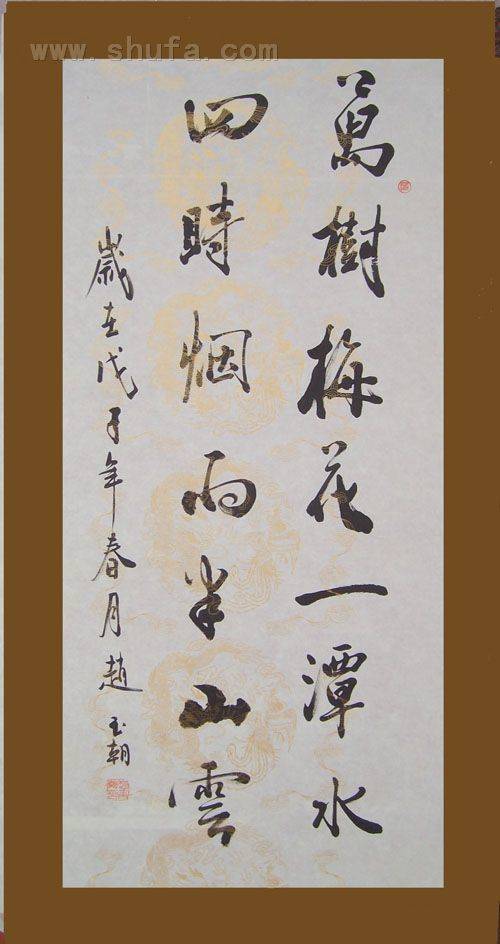 www.shufa.com
萬樹梅花一潭水
四時烟雨半山雲
歲在戊子年春月趙玉朝